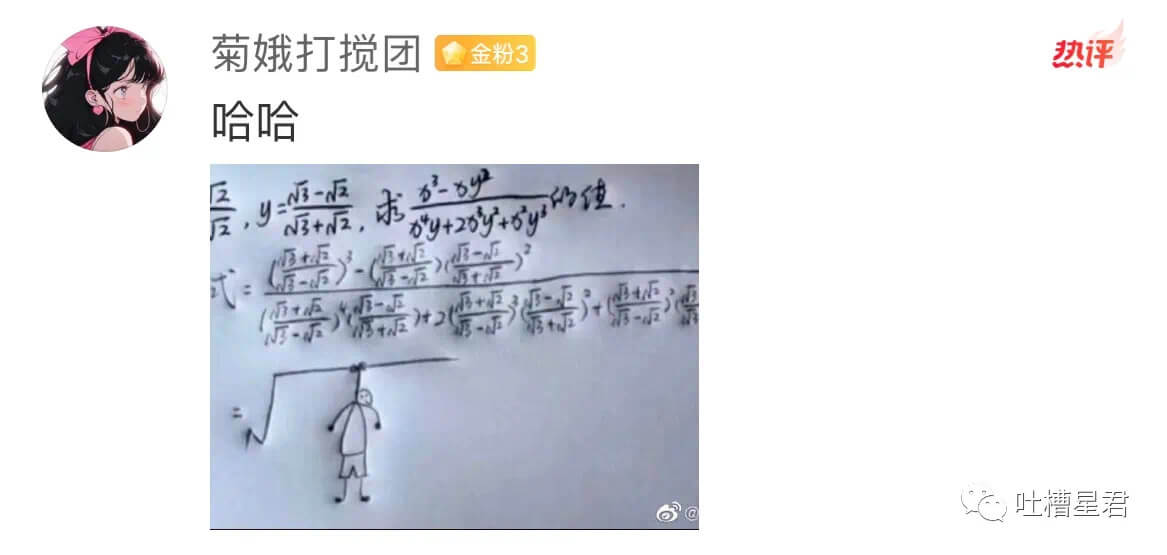 菊娥打搅团 金粉3
热评
哈哈
√2/√2, y=(√3-√2)/(√3+√2), 求 (x³-xy²)/(x⁴y+2x³y²+x²y³) 的值.
式= (((√3+√2)/(√3-√2))³-((√3+√2)/(√3-√2))((√3-√2)/(√3+√2))²)/(((√3+√2)/(√3-√2))⁴((√3-√2)/(√3+√2))+2((√3+√2)/(√3-√2))³((√3-√2)/(√3+√2))²+((√3+√2)/(√3-√2))²(√3/√3
=√
@
吐槽星君